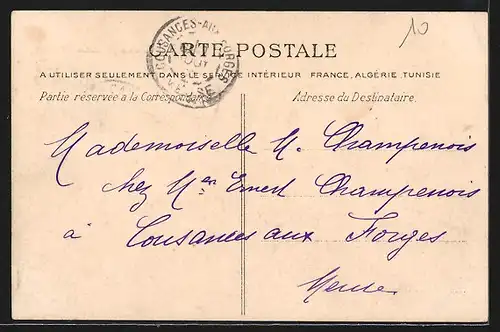 10
CARTE POSTALE
A UTILISER SEULEMENT DANS LE SERVICE INTÉRIEUR FRANCE, ALGÉRIE TUNISIE
Partie réservée a la Correspondance
Adresse du Destinataire.
COUSANCES-AUX-FORGES
AOUT
MEUSE
Mademoiselle M. Champenois
chez Mr Ernest Champenois
à Cousances aux Forges
Meuse